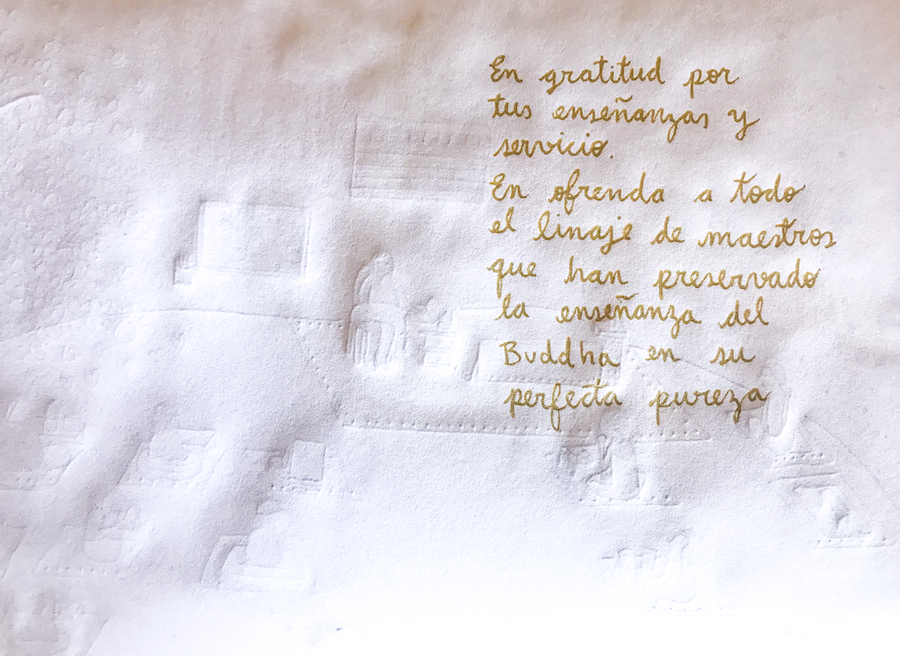 En gratitud por
tus enseñanzas y
servicio.
En ofrenda a todo
el linaje de maestros
que han preservado
la enseñanza del
Buddha en su
perfecta pureza